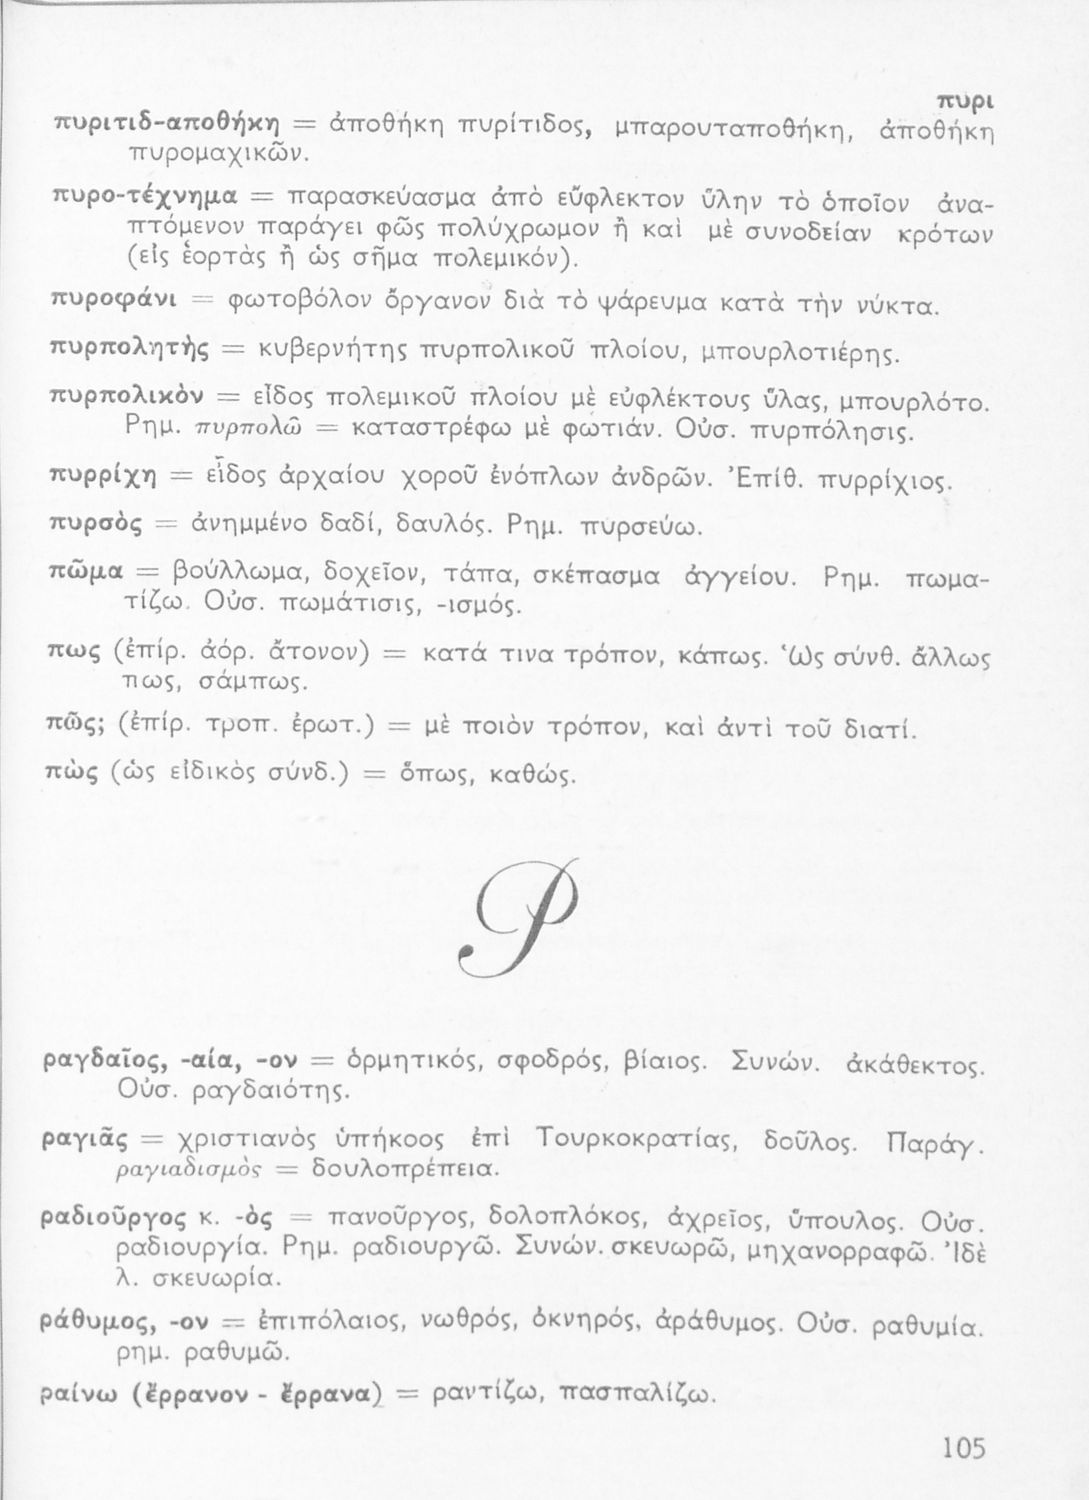 πυρι
πυριτιδ-αποθήκη = ἀποθήκη πυρίτιδος, μπαρουταποθήκη, ἀποθήκη
πυρομαχικῶν.
πυρο-τέχνημα = παρασκεύασμα ἀπὸ εὔφλεκτον ὕλην τὸ ὁποῖον ἀνα-
πτόμενον παράγει φῶς πολύχρωμον ἢ καὶ μὲ συνοδείαν κρότων
(εἰς ἑορτὰς ἢ ὡς σῆμα πολεμικόν).
πυροφάνι = φωτοβόλον ὄργανον διὰ τὸ ψάρευμα κατὰ τὴν νύκτα.
πυρπολητὴς = κυβερνήτης πυρπολικοῦ πλοίου, μπουρλοτιέρης.
πυρπολικὸν = εἶδος πολεμικοῦ πλοίου μὲ εὐφλέκτους ὕλας, μπουρλότο.
Ρημ. πυρπολῶ = καταστρέφω μὲ φωτιάν. Οὐσ. πυρπόλησις.
πυρρίχη = εἶδος ἀρχαίου χοροῦ ἐνόπλων ἀνδρῶν. Ἐπίθ. πυρρίχιος.
πυρσὸς = ἀνημμένο δαδί, δαυλός. Ρημ. πυρσεύω.
πῶμα = βούλλωμα, δοχεῖον, τάπα, σκέπασμα ἀγγείου. Ρημ. πωμα-
τίζω. Οὐσ. πωμάτισις, -ισμός.
πως (ἐπίρ. ἀόρ. ἄτονον) = κατά τινα τρόπον, κάπως. Ὡς σύνθ. ἄλλως
πως, σάμπως.
πῶς; (ἐπίρ. τροπ. ἐρωτ.) = μὲ ποιὸν τρόπον, καὶ ἀντὶ τοῦ διατί.
πὼς (ὡς εἰδικὸς σύνδ.) = ὅπως, καθώς.
Ρ
ραγδαῖος, -αία, -ον = ὁρμητικός, σφοδρός, βίαιος. Συνών. ἀκάθεκτος.
Οὐσ. ραγδαιότης.
ραγιᾶς = χριστιανὸς ὑπήκοος ἐπὶ Τουρκοκρατίας, δοῦλος. Παράγ.
ραγιαδισμὸς = δουλοπρέπεια.
ραδιοῦργος κ. -ὸς = πανοῦργος, δολοπλόκος, ἀχρεῖος, ὕπουλος. Οὐσ.
ραδιουργία. Ρημ. ραδιουργῶ. Συνών. σκευωρῶ, μηχανορραφῶ. Ἰδὲ
λ. σκευωρία.
ράθυμος, -ον = ἐπιπόλαιος, νωθρός, ὀκνηρός, ἀράθυμος. Οὐσ. ραθυμία.
ρημ. ραθυμῶ.
ραίνω (ἔρρανον - ἔρρανα) = ραντίζω, πασπαλίζω.
105